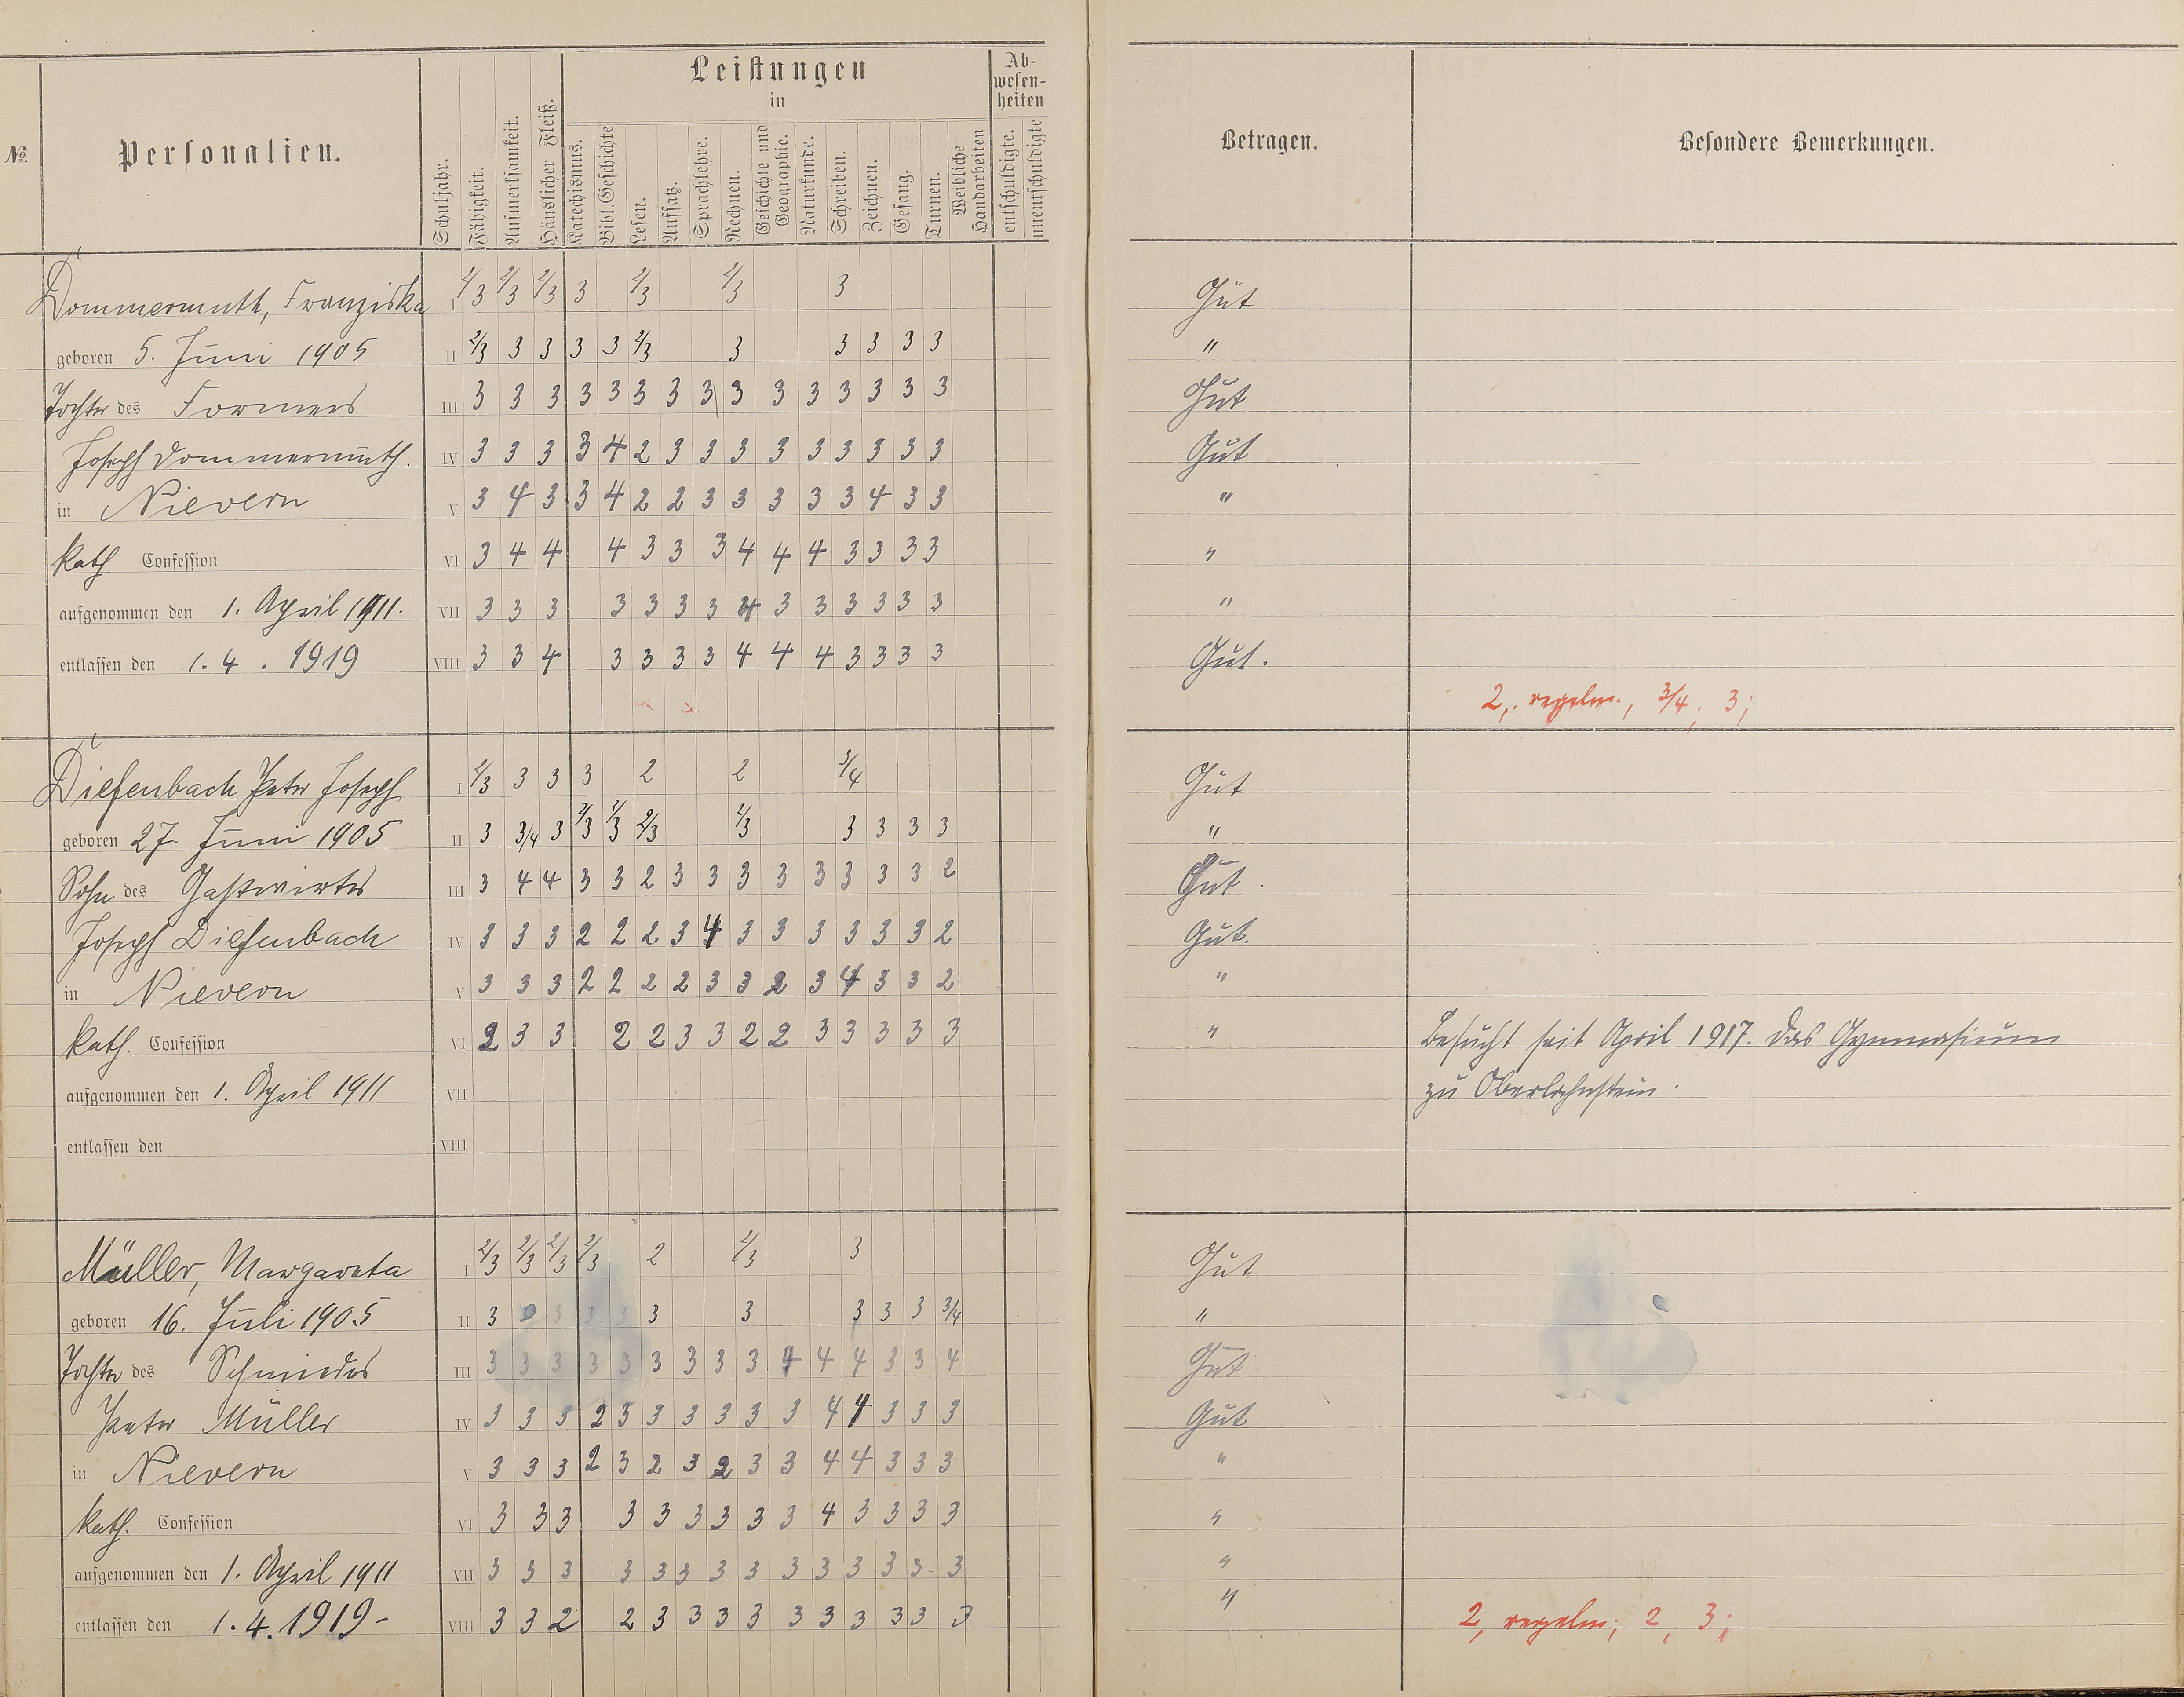 №.
Personalien.
Schuljahr.
Fähigkeit.
Aufmerksamkeit.
Häuslicher Fleiß.
Leistungen
in
Katechismus.
Bibl. Geschichte
Lesen.
Aufsatz.
Sprachlehre.
Rechnen.
Geschichte und Geographie.
Naturkunde.
Schreiben.
Zeichnen.
Gesang.
Turnen.
Weibliche Handarbeiten
Abwesenheiten
entschuldigte.
unentschuldigte
Betragen.
Besondere Bemerkungen.
Dommermuth, Franziska I 2/3 2/3 2/3 3 2/3 2/3 3 Gut
geboren 5. Juni 1905 II 2/3 3 3 3 3 2/3 3 3 3 3 3 "
Tochter des Formers III 3 3 3 3 3 3 3 3 3 3 3 3 3 3 3 Gut
Joseph Dommermuth. IV 3 3 3 3 4 2 3 3 3 3 3 3 3 3 3 Gut
in Nievern V 3 4 3 3 4 2 2 3 3 3 3 3 4 3 3 "
Kath Confession VI 3 4 4 4 3 3 3 4 4 4 3 3 3 3 "
aufgenommen den 1. April 1911. VII 3 3 3 3 3 3 3 4 3 3 3 3 3 3 "
entlassen den 1. 4. 1919 VIII 3 3 4 3 3 3 3 4 4 4 3 3 3 3 Gut.
2, regelm., 3/4, 3;
Diefenbach Peter Joseph I 2/3 3 3 3 2 2 3/4 Gut
geboren 27. Juni 1905 II 3 3/4 3 2/3 2/3 2/3 2/3 3 3 3 3 "
Sohn des Gastwirtes III 3 4 4 3 3 2 3 3 3 3 3 3 3 3 2 Gut.
Joseph Diefenbach IV 3 3 3 2 2 2 3 4 3 3 3 3 3 3 2 Gut.
in Nievern V 3 3 3 2 2 2 2 3 3 2 3 4 3 3 2 "
Kath. Confession VI 2 3 3 2 2 3 3 2 2 3 3 3 3 3 " Besucht seit April 1917. das Gymnasium
aufgenommen den 1. April 1911 VII zu Oberlahnstein.
entlassen den VIII
Müller, Margareta I 2/3 2/3 2/3 2/3 2 2/3 3 Gut
geboren 16. Juli 1905 II 3 3 3 3 3 3 3 3 3 3/4 "
Tochter des Schmiedes III 3 3 3 3 3 3 3 3 3 4 4 4 3 3 4 Gut.
Peter Müller IV 3 3 3 2 3 3 3 3 3 3 4 4 3 3 3 Gut
in Nievern V 3 3 3 2 3 2 3 2 3 3 4 4 3 3 3 "
Kath. Confession VI 3 3 3 3 3 3 3 3 3 4 3 3 3 3 "
aufgenommen den 1. April 1911 VII 3 3 3 3 3 3 3 3 3 3 3 3 3 3 "
entlassen den 1. 4. 1919- VIII 3 3 2 2 3 3 3 3 3 3 3 3 3 3 " 2, regelm; 2, 3;